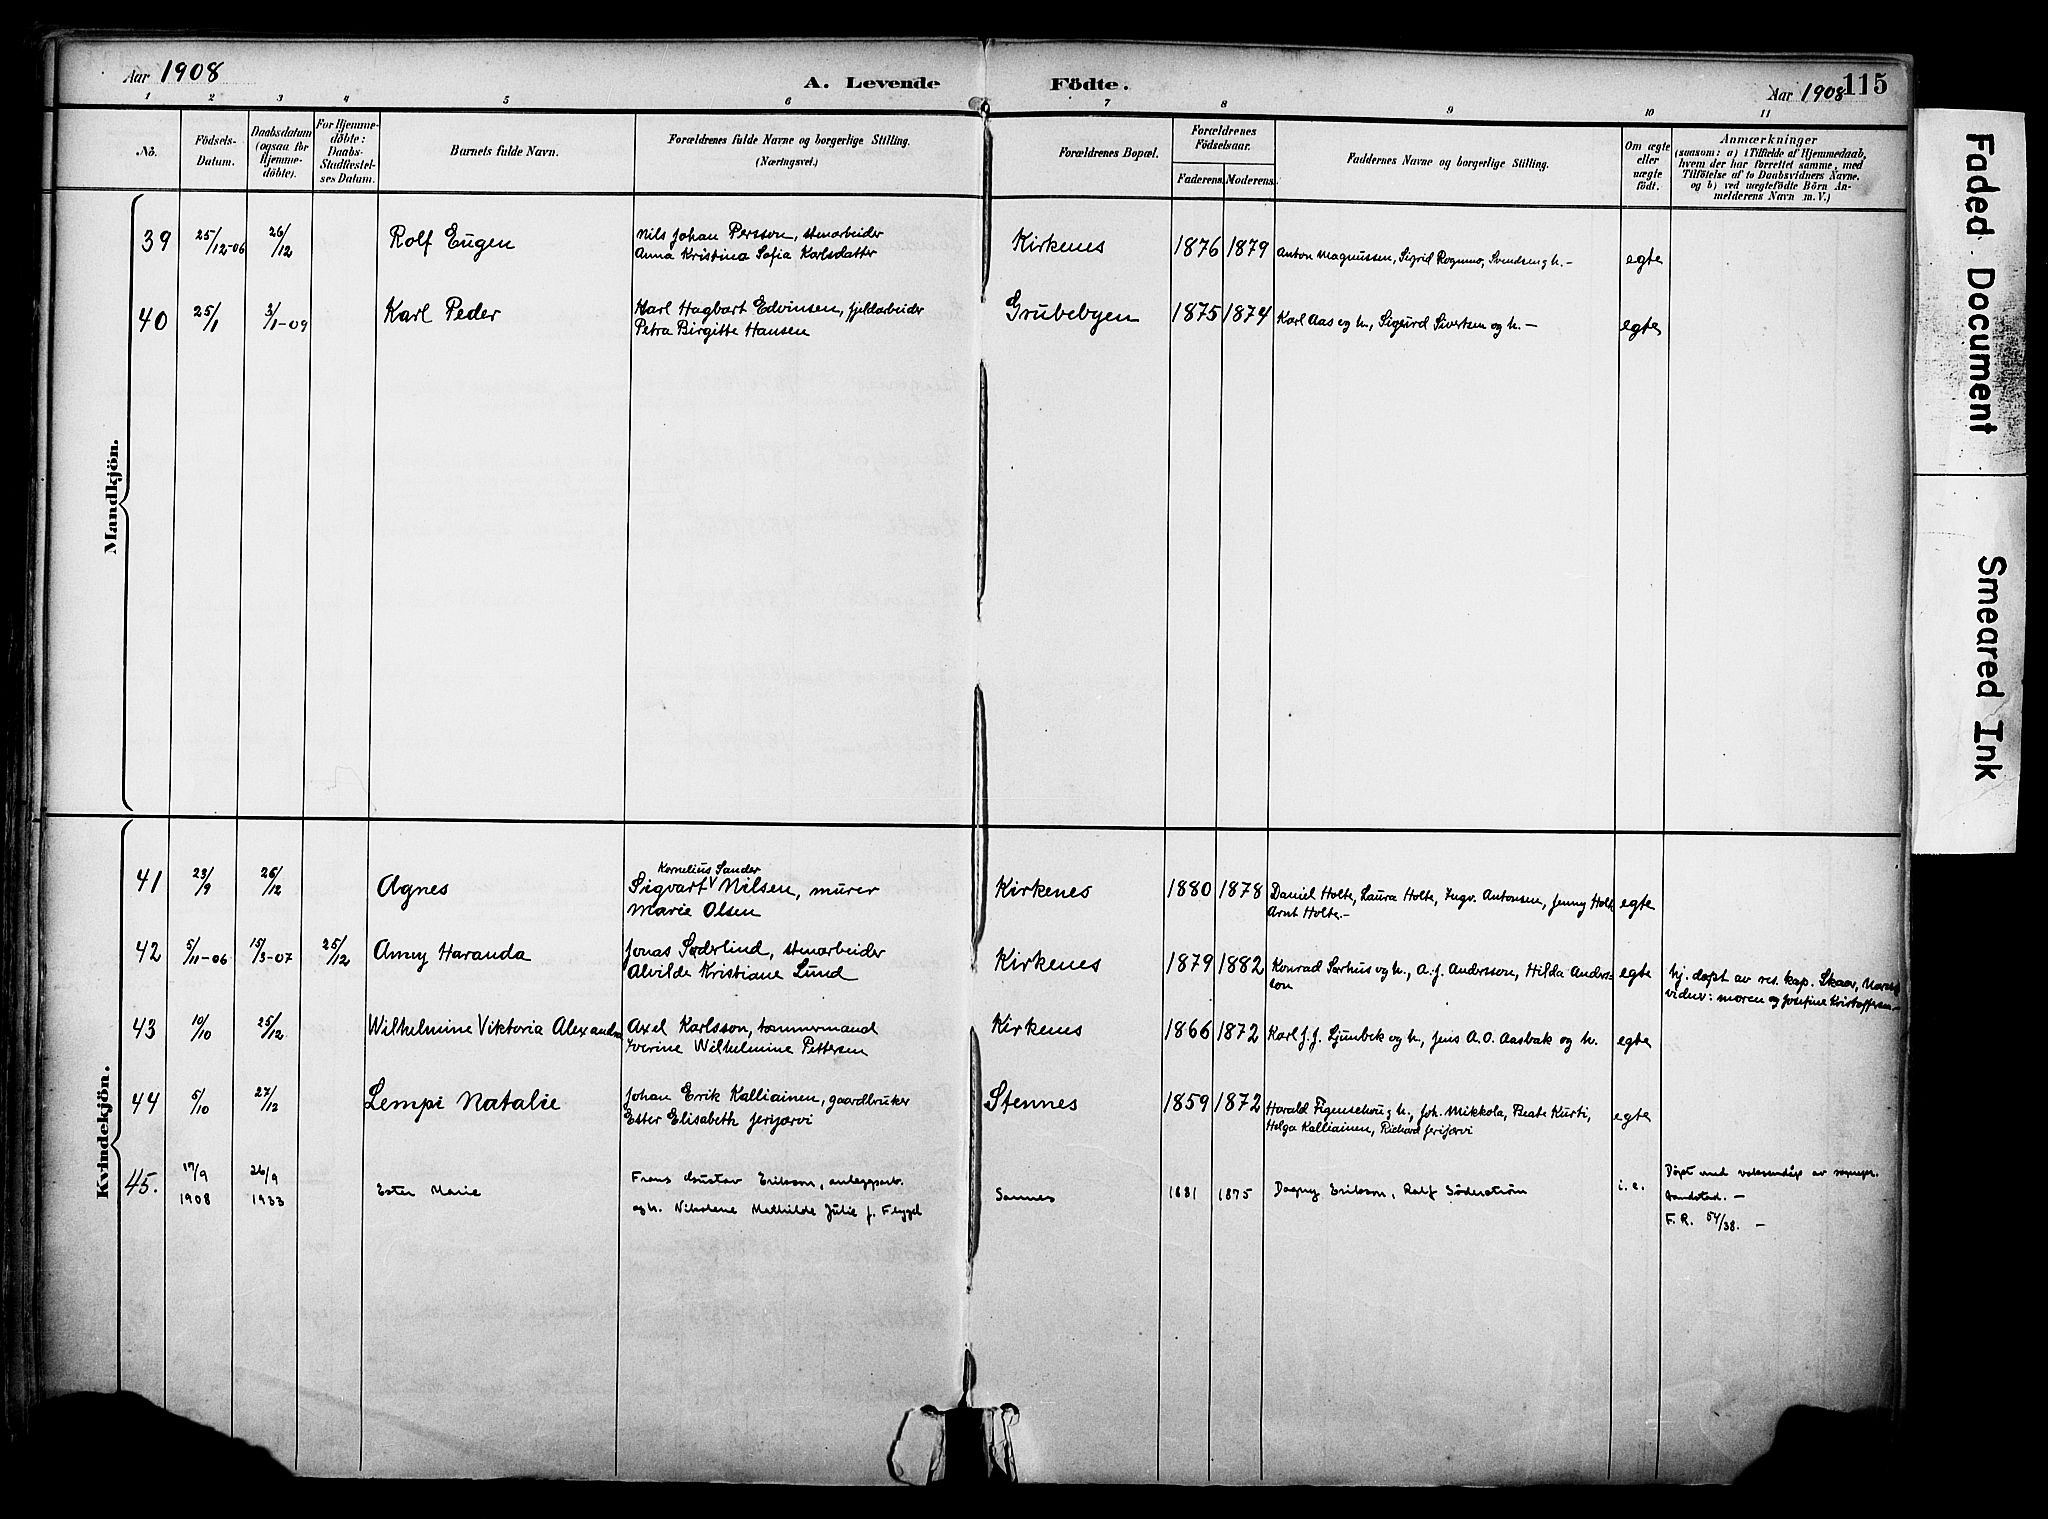 Aar 1908
A. Levende Födte.
Aar 1908
115
1 2 3 4 5 6 7 8 9 10 11
Nô.
Födsels-
Datum.
Daabsdatum
(ogsaa for
Hjemme-
döbte).
For Hjemme-
döbte:
Daabs-
Stadfæstel-
ses Datum.
Barnets fulde Navn.
Forældrenes fulde Navne og borgerlige Stilling.
(Næringsvei.)
Forældrenes Bopæl.
Forældrenes
Födselsaar.
Faderens. Moderens.
Faddernes Navne og borgerlige Stilling.
Om ægte
eller
uægte
födt.
Anmærkninger
(saasom: a) i Tilfælde af Hjemmedaab,
hvem der har forrettet samme, med
Tilföielse af to Daabsvidners Navne.
og b) ved uægtefödte Börn An-
melderens Navn m.V.)
Mandkjön.
39 25/12-06 26/12 Rolf Eugen Nils Johan Persson, stenarbeider Kirkenes 1876 1879 Anton Magnussen, Sigrid Rognmo, Svendsen g h. - egte
Anna Kristina Sofia Karlsdatter
40 25/1 3/1-09 Karl Peder Karl Hagbart Edvinsen, fjeldarbeider Grubebyen 1875 1874 Karl Aas og h., Sigurd Sivertsen og h. - egte
Petra Birgitte Hansen
Kvindekjön.
Kornelius Sander
41 23/9 26/12 Agnes Sigvart Nilsen, murer Kirkenes 1880 1878 Daniel Holte, Laura Holte, Ingv. Antonsen, Jenny Holt egte
Marie Olsen Arnt Holte.-
42 5/11-06 15/3-07 25/12 Anny Haranda Jonas Søderlind, stenarbeider Kirkenes 1879 1882 Konrad Sørhus og h., A. J. Andersson, Hilda Anders- egte hj. døpt av res. kap. Skaar,
Alvilde Kristiane Lund son vidner: moren og Josefine Kristoffersen-
43 10/10 25/12 Wilhelmine Viktoria Alexandra Axel Karlsson, tømmermand Kirkenes 1866 1872 Karl J. J. Ljumbek og h., Jens A. O. Aasbak og h. egte
Iverine Wilhelmine Pettersen
44 5/10 27/12 Lempi Natalie Johan Erik Kalliainen, gaardbruker Stennes 1859 1872 Harald Figenschou g h., Joh. Mikkola, Beate Kurti, egte
Ester Elisabeth Jerijærvi Helga Kalliainen, Richard Jerijærvi
45. 17/9 1908 26/9 1933 Ester Marie Frans Gustav Eriksson, anleggsarb. Sannes 1881 1875 Dagny Eriksson, Ralf Söderström i.e. Døpt ved voksendåp av sognepr.
og h. Nikoline Mathilde Julie f. Flygel Sandstad. -
F.R. 54/38. -
Faded Document
Smeared Ink